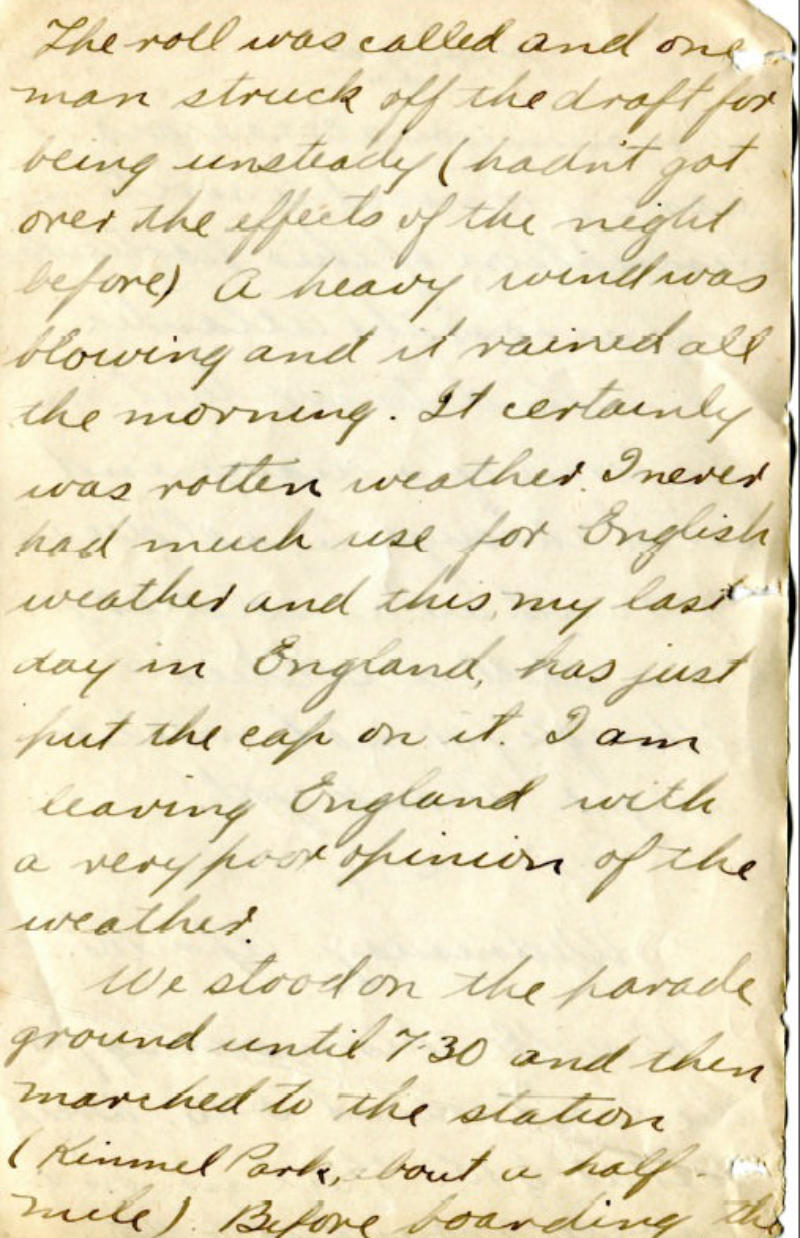 The roll was called and one
man struck off the draft for
being unsteady (hadn't got
over the effects of the night
before) A heavy wind was
blowing and it rained all
the morning. It certainly
was rotten weather. I never
had much use for English
weather and this, my last
day in England, has just
put the cap on it. I am
leaving England with
a very poor opinion of the
weather.
We stood on the parade
ground until 7.30 and then
marched to the station
(Kinmel Park, about a half-
mile). Before boarding the